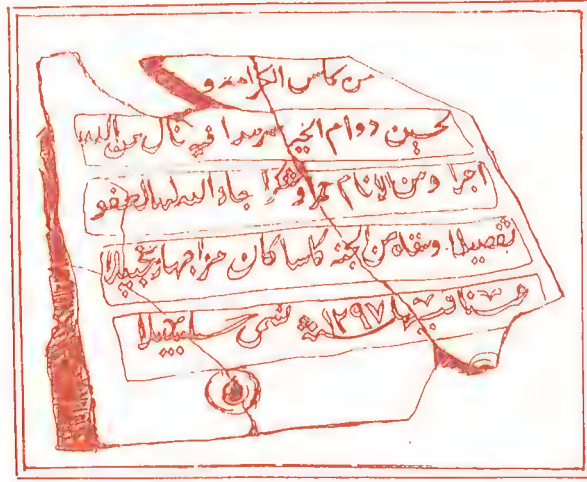 من كاس الكرامة و
لحسين دوام الخير سرمدا فيه نال من الله
اجرا ومن الانام وشكرا جاد الله له العفو
تفضيلا وسقاه من الجنة كاسا كان مزاجها زنجبيلا
عينا فيها سنة ١٢٩٧ تسمى سلسبيلا